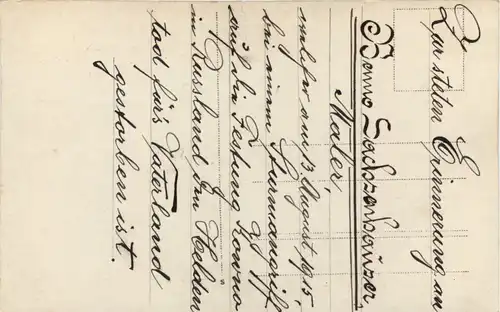 Zur steten Erinnerung an
Benno Sachsenhauser,
Maler,
welcher am 13. August 1915,
bei einem Sturmangriff
auf die Festung Kowno
in Rusland den Helden
tod fürs Vaterland
gestorben ist.